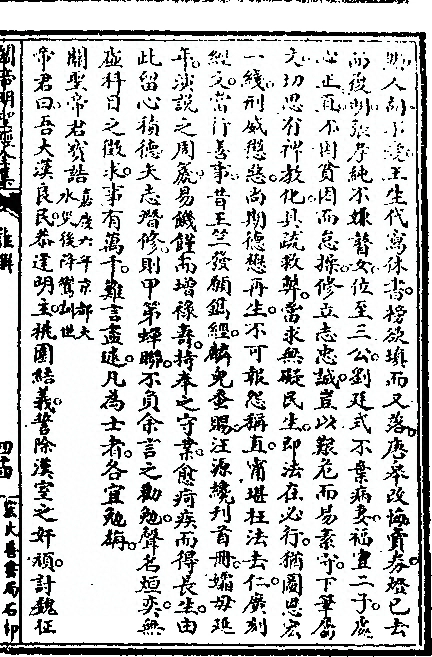 人王生代寫休書榜欲填而又落唐舉改悔賣券燈已去
而復明敬孝純不嫌瞽女位至三公劉廷式不棄病妻福宜二子處
心正直不因貧困而怠操修立志忠誠豈以艱危而易素守下筆屬
文切思有裨教化具疏救弊當求無礙民生即法在必行猶圖思宏
一綫刑威懲惡尚期德懋再生不可報怨稱直甯堪枉法去仁廣刻
經文當行善事昔王竺發願鐫經麟兒疊賜汪源纔刊首冊孀母延
年演說之周處易饑饉而增祿壽持奉之守業愈痾疾而得長生由
此留心積德矢志潛修則甲第蟬聯不負余言之勸勉聲名垣奕無
虛科目之徵求事有萬千難言盡述凡為士者各宜勉旃
關聖帝君寶誥嘉慶六年京都大水災後降鸞訓世
帝君曰吾大漢良民恭逢明主桃園結義誓除漢室之奸頑討魏征
關帝明聖經全集
註解
四
宏大善書局石印